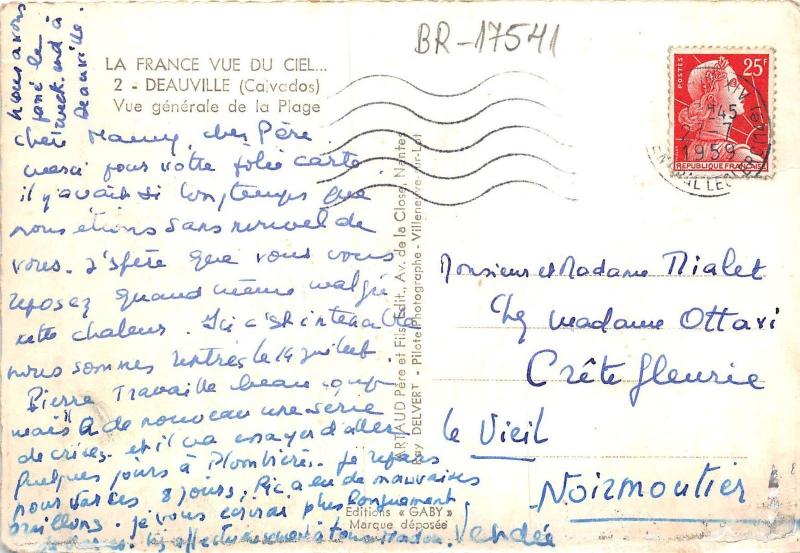 BR-17541
nous avons
passé le
week-end à
Deauville.
LA FRANCE VUE DU CIEL...
2 - DEAUVILLE (Calvados)
Vue générale de la Plage
POSTES
25F
1245
7
1959
REPUBLIQUE FRANÇAISE
chère Mamy, cher Père
merci pour votre jolie carte
il y avait si longtemps que
nous étions sans nouvel de
vous. J'espère que vous vous
reposez quand même malgré
cette chaleur. Ici c'est intenable
nous sommes rentrés le 14 juillet.
Pierre Travaille beaucoup
mais a de nouveau une série
de crises. et il va essayer d'aller
quelques jours à Plombières. Je repars
pour Var 8 jours. Pic a eu de mauvaises
je vous écrirai plus longuement
affectueusement à tous
ARTAUD Père et Fils, Edit. Av. de la Close, Nantes
Ray DELVERT - Pilote Photographe - Villeneuve-sur-Lot
Editions « GABY »
Marque déposée
Monsieur et Madame Rialet
Chez madame Ottavi
Crête fleurie
le Vieil
Noirmoutier
Vendée